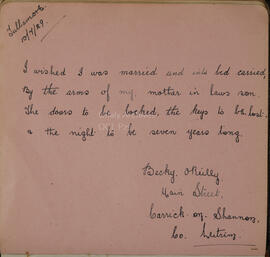 Tullamore
I wished I was married and into bed carried,
By the arms of my mother in laws son.
The doors to be locked, the keys to be lost.
a the night to be seven years long.
Becky O'Reilly
Main Street,
Carrick-on-Shannon,
Co. Leitrim.